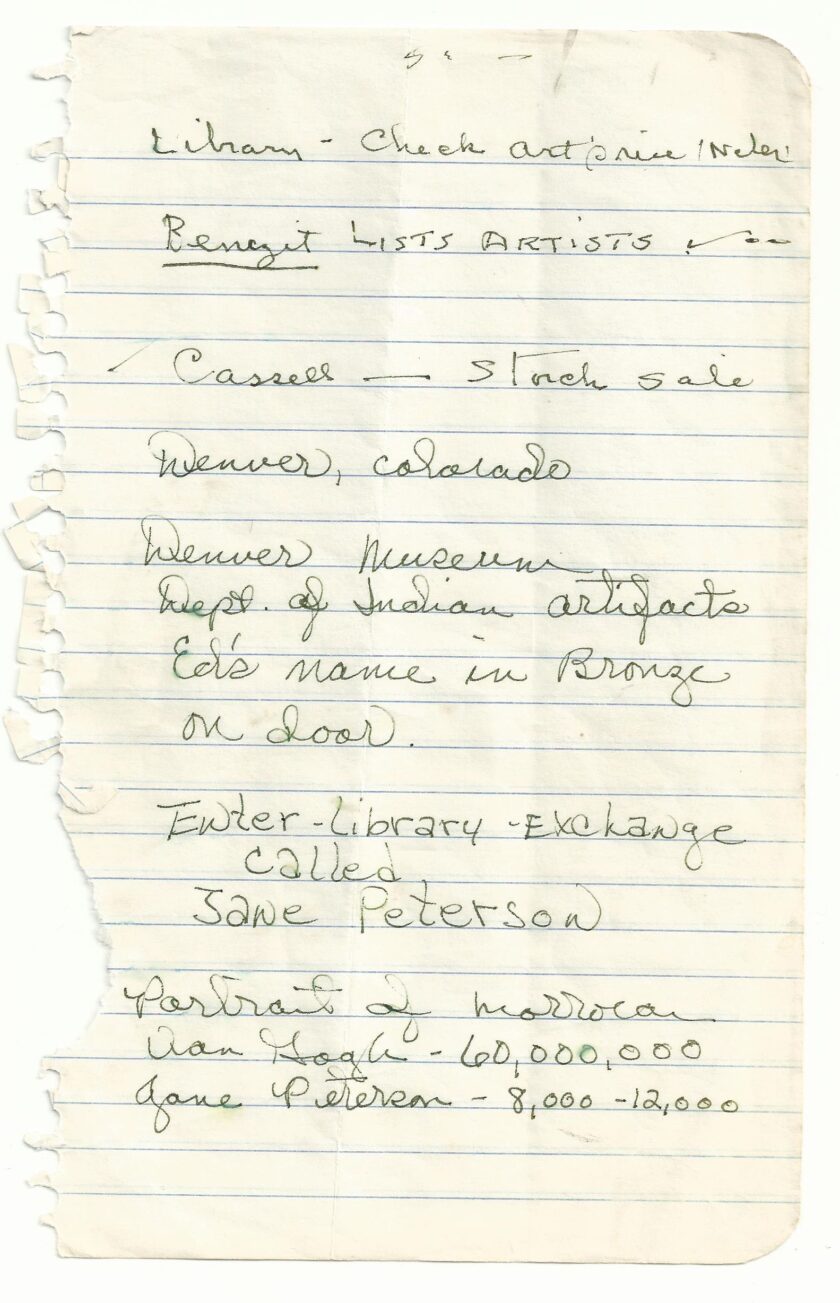 Library - Check art price Index
Benezit LISTS ARTISTS
Cassell — Stock sale
Denver, Colorado
Denver Museum
Dept. of Indian artifacts
Ed's name in Bronze
on door.
Enter-Library-Exchange
called
Jane Peterson
Portrait of Morrocan
Van Gogh - 60,000,000
Jane Peterson - 8,000 -12,000